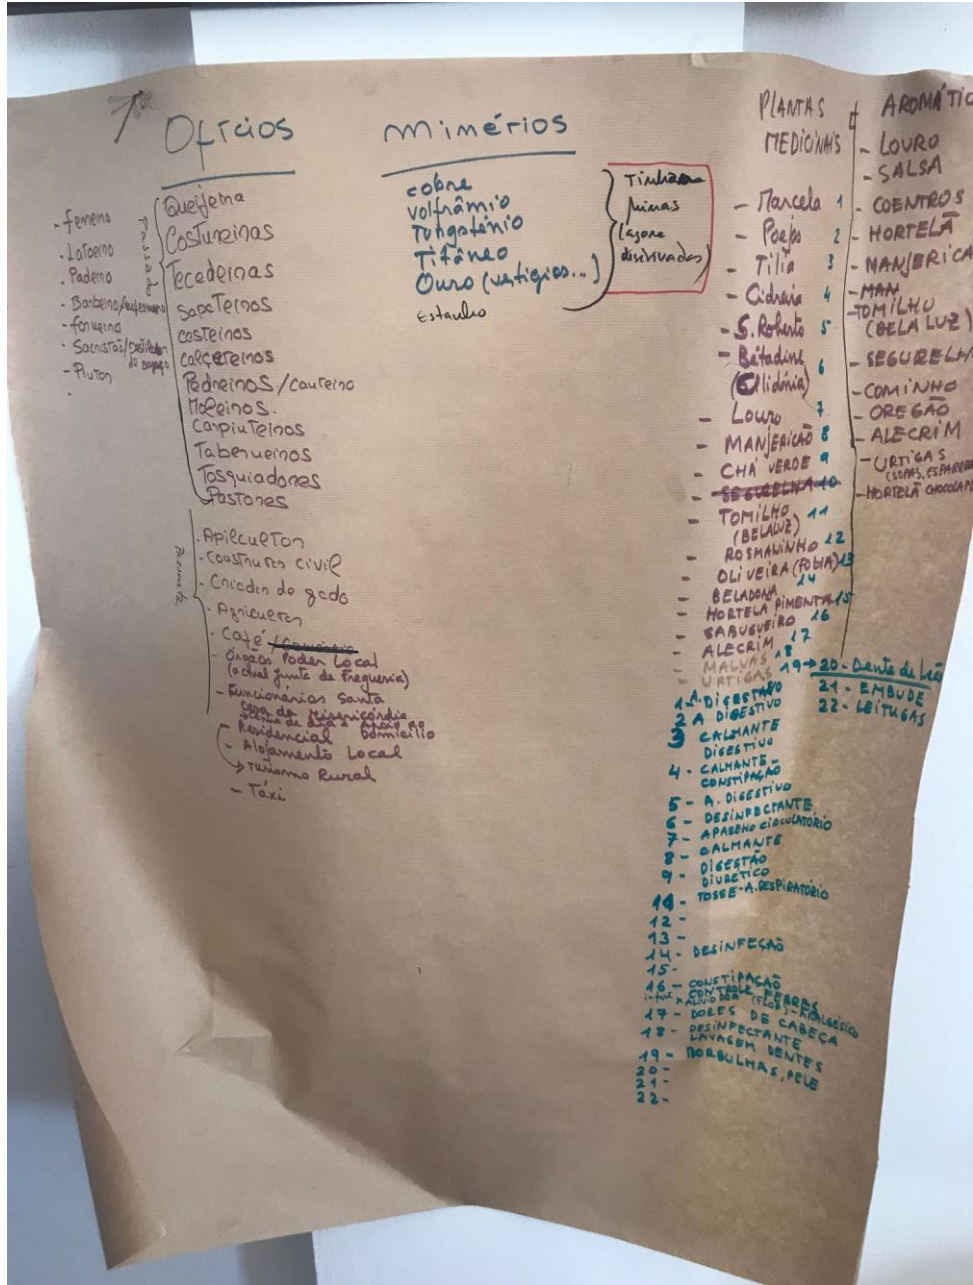 Ofícios
Passado
Queijeira
Costureiras
Tecedeiras
Sapateiros
cesteiros
calceteiros
Pedreiros / Canteiro
Moleiros.
Carpinteiros
Taberneiros
Tosquiadores
Pastores
- ferreiro
- Latoeiro
- Padeiro
- Barbeiro/enfermeiro
- forneiro
- Sacristão/Destilador
de bagaço
- Pintor
Presente
- Apicultor
- Construtor civil
- Criador de gado
- Agricultor
- Café /
- Órgãos Poder Local
(actual Junta de Freguesia)
- Funcionários Santa
Casa da Misericórdia
Centro de Dia e Apoio ao
Domicílio
Residencial
- Alojamento Local
→ Turismo Rural
- Táxi
Mimérios
cobre
volfrâmio
Tungsténio
Titâneo
Ouro (vestígios...)
Estanho
minas
(agora
PLANTAS
MEDICINAIS
- Marcela 1
- Poejo 2
- Tília 3
- Cidreira 4
- S. Roberto 5
- Betadine 6
(Celidónia)
- Louro 7
- MANJERICÃO 8
- CHÁ VERDE 9
- SEGURELHA 10
- TOMILHO 11
(BELALUZ)
- ROSMANINHO 12
- OLIVEIRA (FOLHA) 13
- BELADONA 14
- HORTELÃ PIMENTA 15
- SABUGUEIRO 16
- ALECRIM 17
- MALVAS 18
- URTIGAS 19 → 20 - Dente de Leão
21 - EMBUDE
22 - LEITUGAS
1 - A. DIGESTIVO
2 A DIGESTIVO
3 CALMANTE
DIGESTIVO
4 - CALMANTE -
CONSTIPAÇÃO
5 - A. DIGESTIVO
6 - DESINFECTANTE
7 - APARELHO CIRCULATÓRIO
8 - CALMANTE
9 - DIGESTÃO
DIURÉTICO
11 - TOSSE - A. RESPIRATÓRIO
12 -
13 -
14 - DESINFEÇÃO
15 -
16 - CONSTIPAÇÃO
CONTROLE FEBRES
ALIVIO DOR (FLOR) - ANALGÉSICO
17 - DORES DE CABEÇA
18 - DESINFECTANTE
LAVAGEM DENTES
19 - BORBULHAS, PELE
20 -
21 -
22 -
AROMÁTIC
- LOURO
- SALSA
- COENTROS
- HORTELÃ
- MANJERICA
- MAN
- TOMILHO
(BELA LUZ)
- SEGURELHA
- COMINHO
- OREGÃO
- ALECRIM
- URTIGAS
(SOPAS, ESPARRE
- HORTELÃ CHOCOLATE